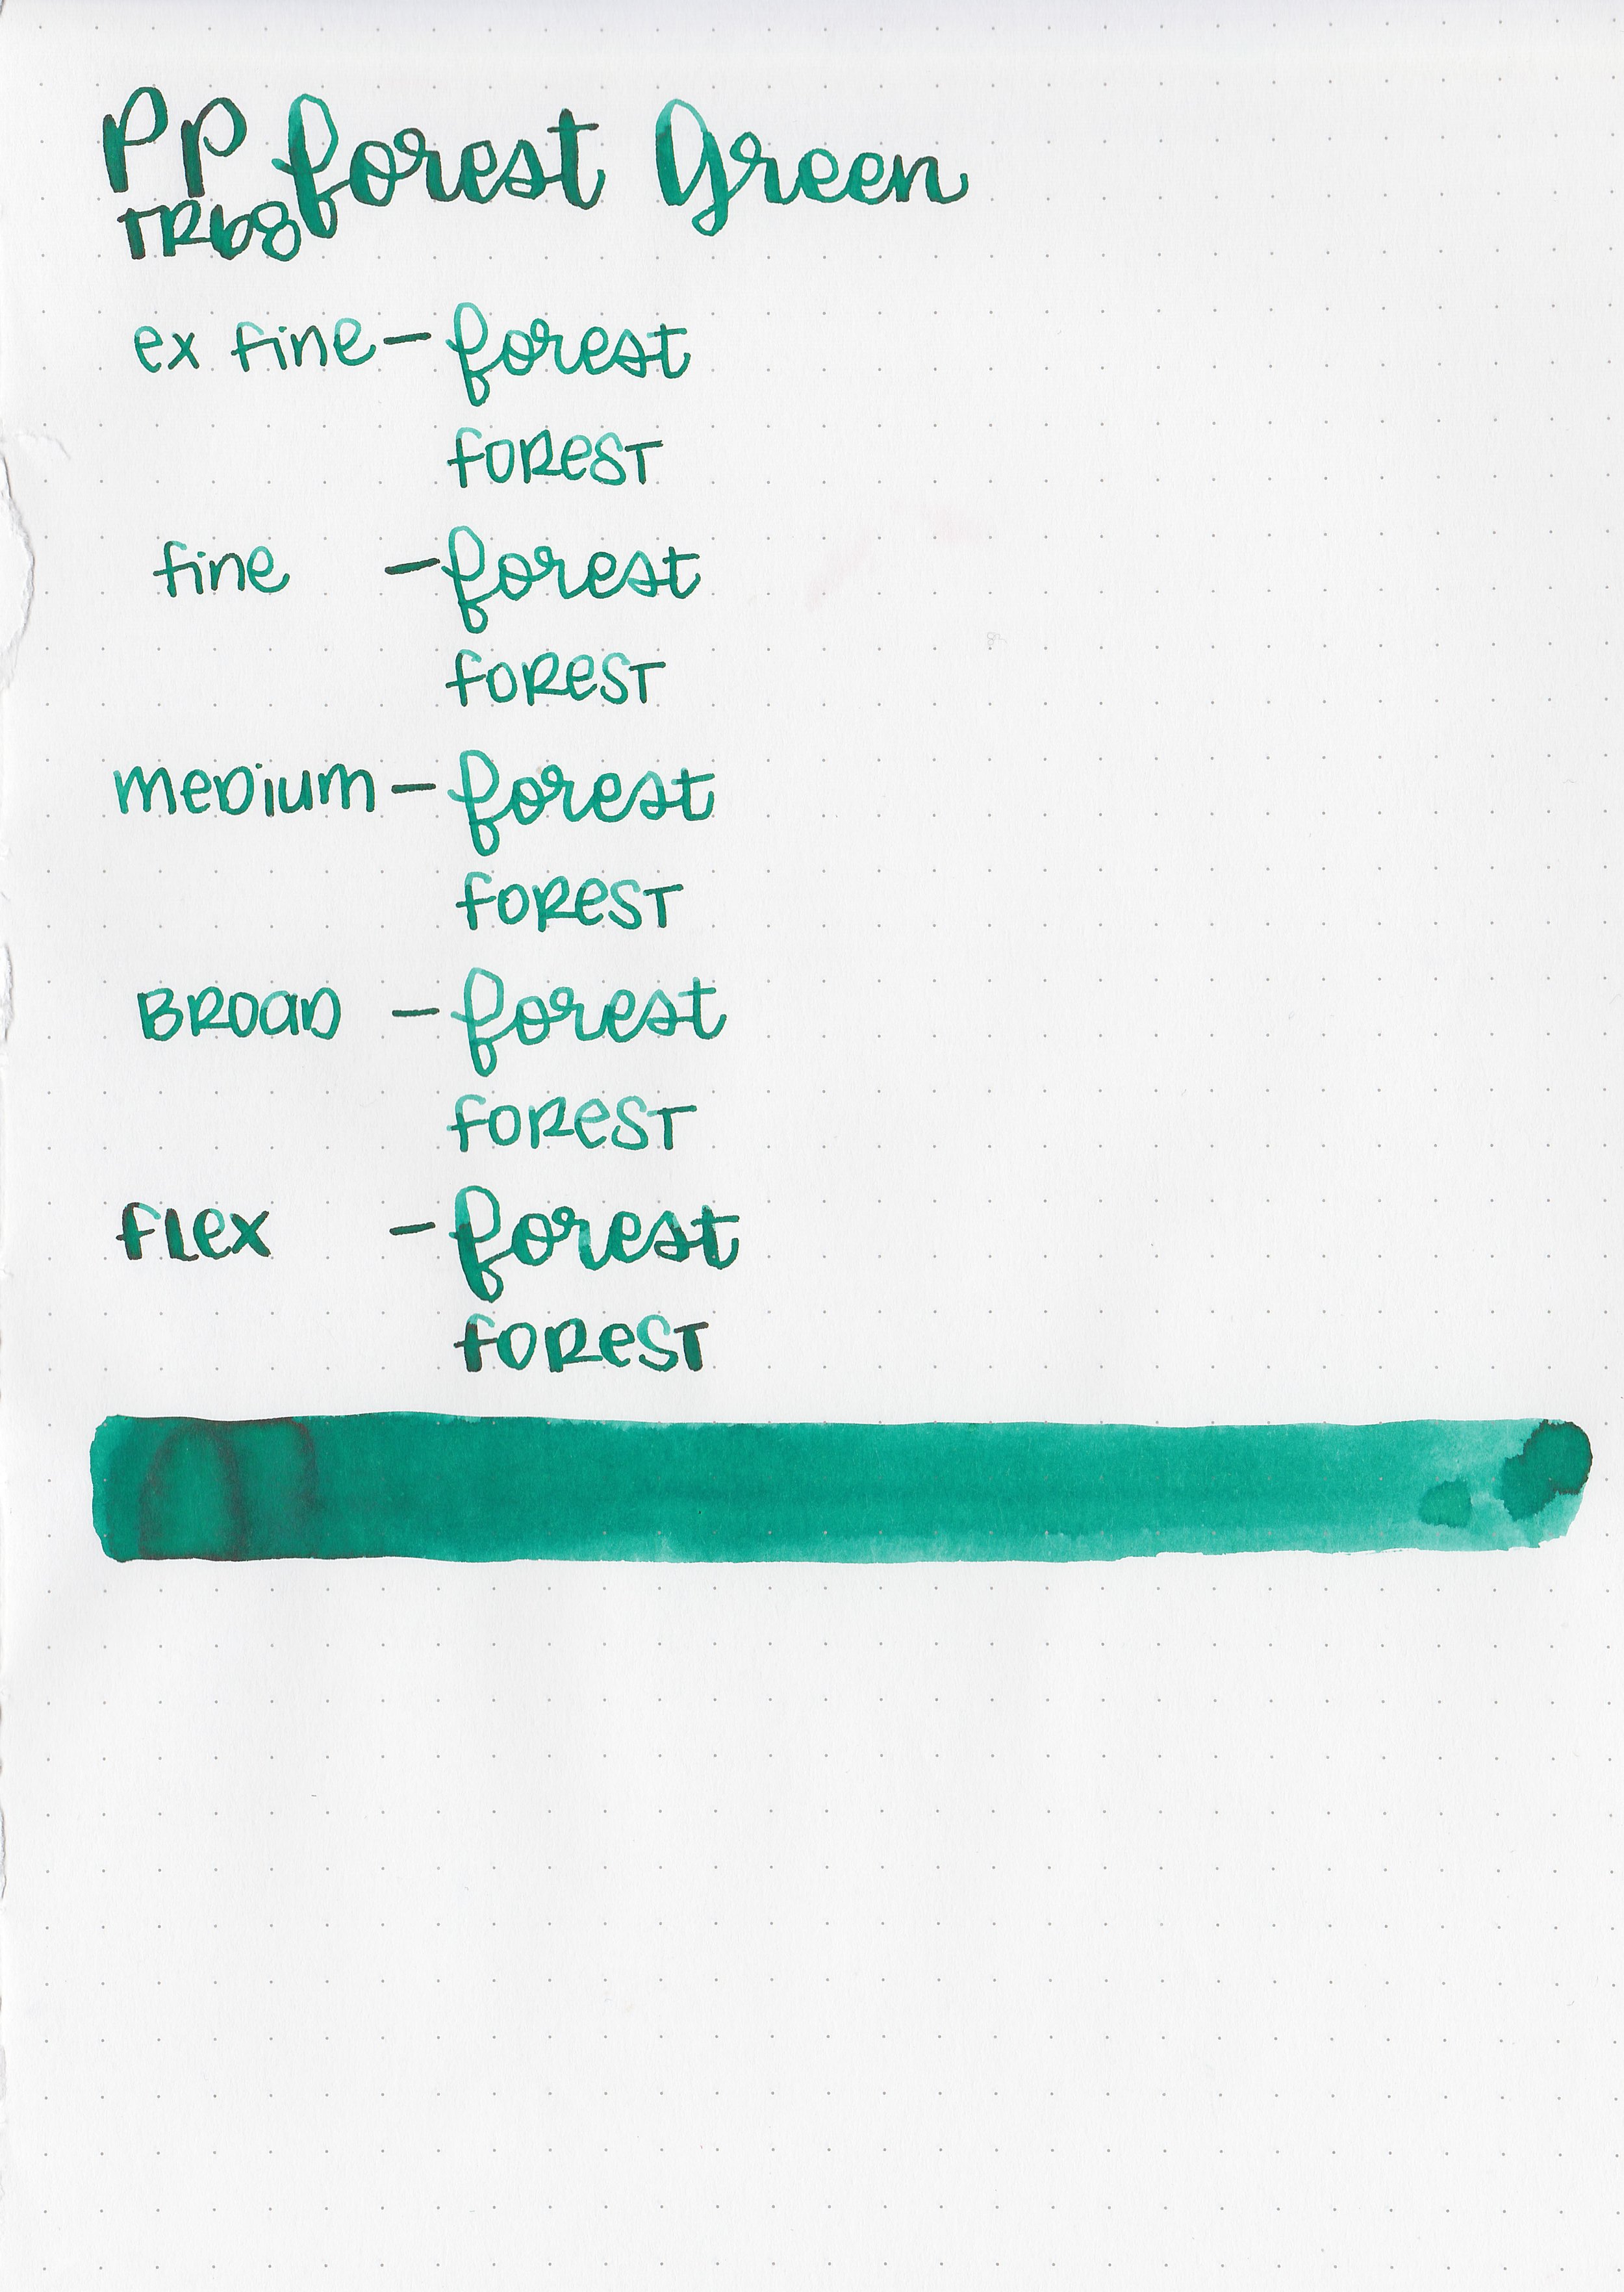 PP forest Green
TR68
ex fine - forest
FOREST
fine - forest
FOREST
meDium - forest
FOREST
BROaD - forest
FOREST
FLex - forest
FOREST